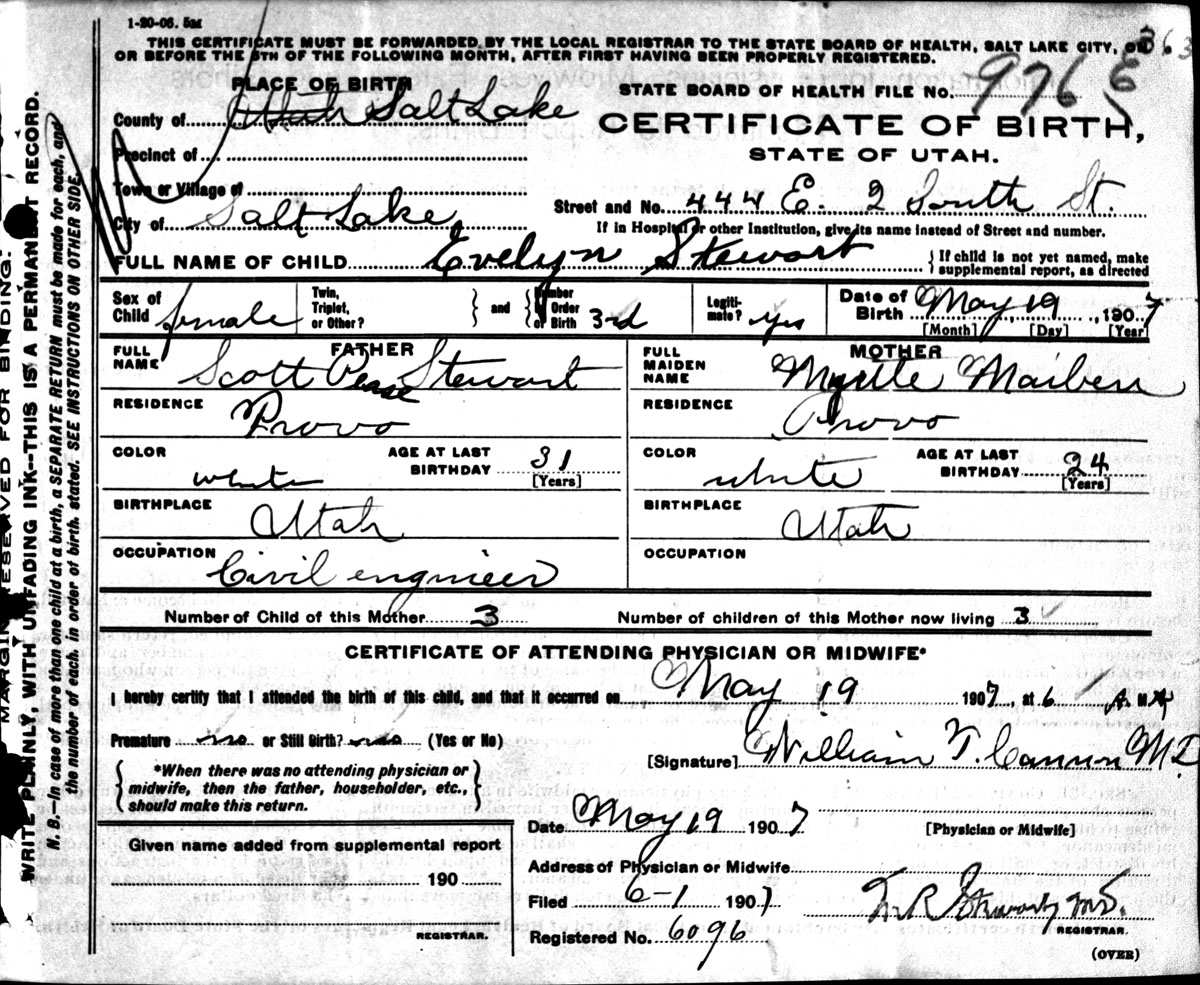 1-20-06. 5M
THIS CERTIFICATE MUST BE FORWARDED BY THE LOCAL REGISTRAR TO THE STATE BOARD OF HEALTH, SALT LAKE CITY, ON
OR BEFORE THE 5TH OF THE FOLLOWING MONTH, AFTER FIRST HAVING BEEN PROPERLY REGISTERED.
363
PLACE OF BIRTH
STATE BOARD OF HEALTH FILE NO. 976 E
County of Utah Salt Lake
CERTIFICATE OF BIRTH,
STATE OF UTAH.
Precinct of
Town or Village of
City of Salt Lake
Street and No. 444 E. 2 South St.
If in Hospital or other Institution, give its name instead of Street and number.
FULL NAME OF CHILD Evelyn Stewart
{ If child is not yet named, make
supplemental report, as directed
Sex of Child female
Twin, Triplet, or Other? } and { Number in Order of Birth 3rd
Legitimate? yes
Date of Birth May 19, 1907
[Month] [Day] [Year]
FATHER
FULL NAME Scott Pease Stewart
RESIDENCE Provo
COLOR white AGE AT LAST BIRTHDAY 31 [Years]
BIRTHPLACE Utah
OCCUPATION Civil engineer
MOTHER
FULL MAIDEN NAME Myrtle Maiben
RESIDENCE Provo
COLOR white AGE AT LAST BIRTHDAY 24 [Years]
BIRTHPLACE Utah
OCCUPATION
Number of Child of this Mother 3 Number of children of this Mother now living 3
CERTIFICATE OF ATTENDING PHYSICIAN OR MIDWIFE*
I hereby certify that I attended the birth of this child, and that it occurred on May 19 1907, at 6 A. M.
Premature no or Still Birth? no (Yes or No)
[Signature] William T. Cannon M.D.
{ *When there was no attending physician or
midwife, then the father, householder, etc.,
should make this return. }
Date May 19 1907
[Physician or Midwife]
Given name added from supplemental report
190
REGISTRAR.
Address of Physician or Midwife
Filed 6-1 1907
Stewart M.D.
REGISTRAR.
Registered No. 6096
(OVER)
MARGIN RESERVED FOR BINDING.
WRITE PLAINLY, WITH UNFADING INK--THIS IS A PERMANENT RECORD.
N. B.--In case of more than one child at a birth, a SEPARATE RETURN must be made for each, and
the number of each, in order of birth, stated. SEE INSTRUCTIONS ON OTHER SIDE.